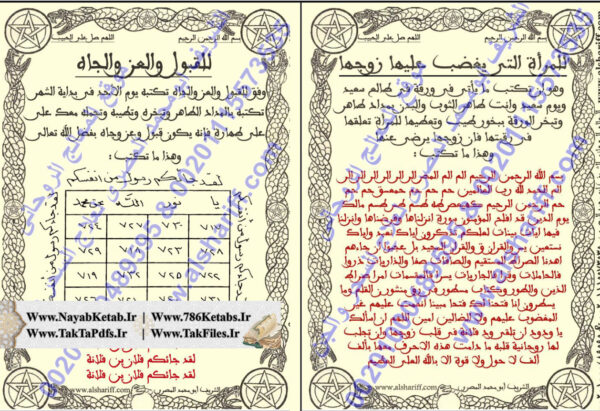 بسم الله الرحمن الرحيم
اللهم صل على الحبيب
للمرأة التي يغضب عليها زوجها
وهو ان تكتب ما يأتي في ورقة في طالع سعيد
ويوم سعيد وانت طاهر الثوب والبدن بمداد طاهر
وتبخر الورقة ببخور طيب وتعطيها للمرأة تعلقها
في رقبتها فان زوجها يرضى عنها
وهذا ما تكتب :
بسم الله الرحمن الرحيم الم الم المص الر الر الر الر الر
الم الحمد لله رب العالمين حم حم حم حمعسق حم حم
حم الرحمن الرحيم كهيعص طه طسم طس طسم مالك
يوم الدين قد افلح المؤمنون سورة انزلناها وفرضناها وانزلنا
فيها ايات بينات لعلكم تذكرون اياك نعبد واياك
نستعين يس والقرآن ق والقرآن المجيد بل عجبوا ان جاءهم
اهدنا الصراط المستقيم والصافات صفا والذاريات ذروا
فالحاملات وقرا فالجاريات يسرا فالمقسمات امرا صراط
الذين والطور وكتاب مسطور في رق منشور ن والقلم وما
يسطرون انا فتحنا لك فتحا مبينا انعمت عليهم غير
المغضوب عليهم ولا الضالين امين اللهم اني اسألك
يا ودود ان تلقي ود فلانة في قلب زوجها وان تجلب
لها روحانية قلبه ما دامت هذه الاحرف معها بألف
ألف لا حول ولا قوة الا بالله العلي العظيم
الشريف أبو محمد المصري
http://www.alshariff.com
بسم الله الرحمن الرحيم
اللهم صل على الحبيب
للقبول والعز والجاه
وفق للقبول والعز والجاه تكتبه يوم الاحد في بداية الشهر
تكتبه بالمداد الطاهر وتبخره وتطيبه وتحمله معك على
على طهارة فإنه يكون قبول وعز وجاه بفضل الله تعالى
وهذا ما تكتب :
لقد جائكم رسول من انفسكم
يا نور الله
٧١٧ ٧٣٠ ٧٢٧ ٧٢٤
٧٢٨ ٧٢٣ ٧١٨ ٧٢٩
٧٢٢ ٧٢٥ ٧٣٢ ٧١٩
لقد جائكم فلان بن فلانة
لقد جائكم فلان بن فلانة
الشريف أبو محمد المصري
http://www.alshariff.com
Www.NayabKetab.Ir | Www.786Ketabs.Ir
Www.TakTaPdfs.Ir | Www.TakFiles.Ir